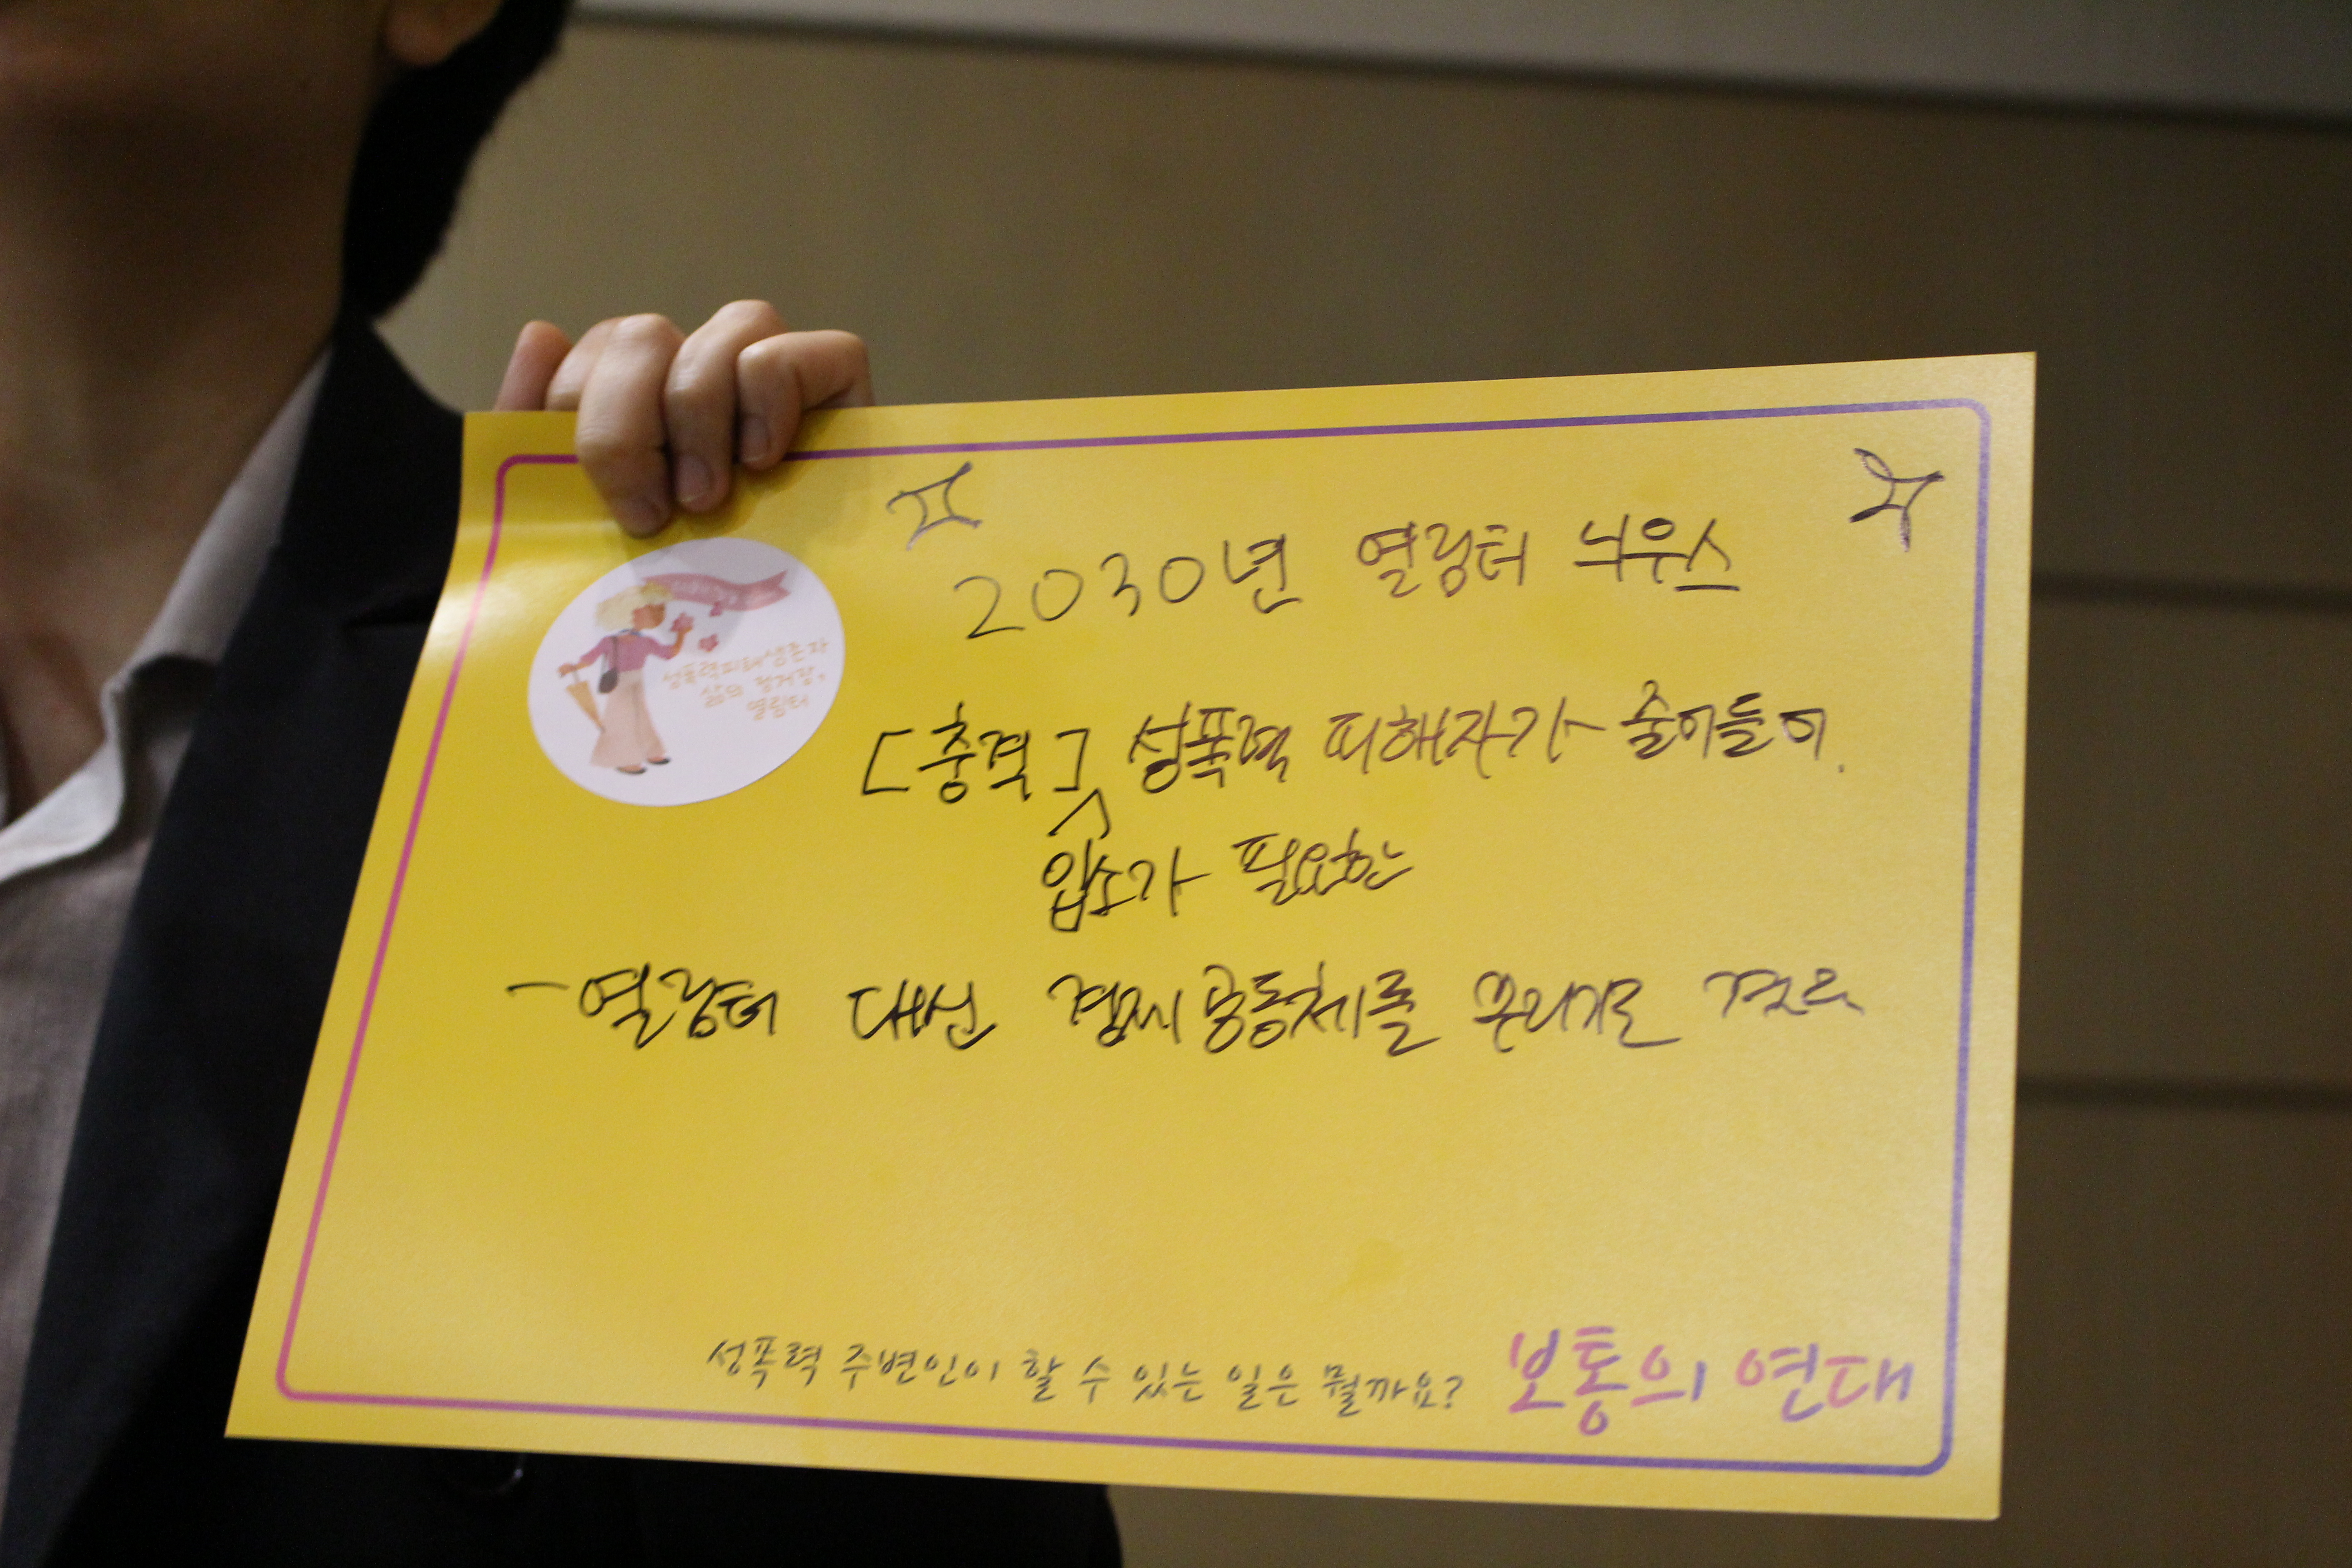 2030년 열림터 늬우스
성폭력피해생존자
삶의 정거장,
열림터
[충격] 성폭력 피해자가 줄어들어.
입소가 필요한
- 열림터 대신 경제공동체를 꾸리기로
성폭력 주변인이 할 수 있는 일은 뭘까요? 보통의 연대